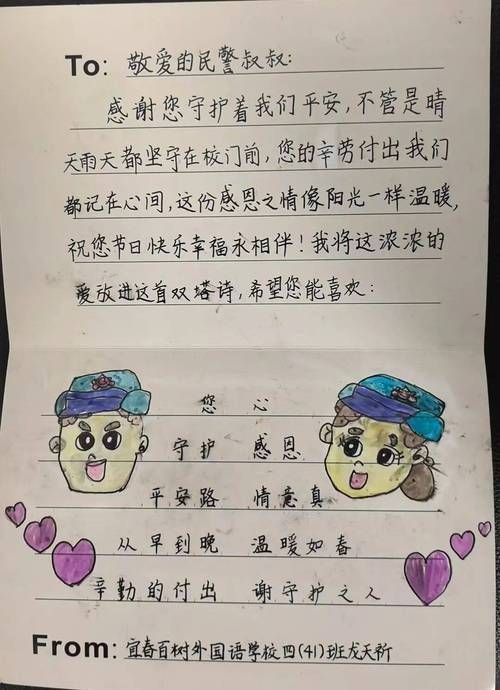 To: 敬爱的民警叔叔:
感谢您守护着我们平安,不管是晴
天雨天都坚守在校门前,您的辛劳付出我们
都记在心间,这份感恩之情像阳光一样温暖,
祝您节日快乐幸福永相伴!我将这浓浓的
爱放进这首双塔诗,希望您能喜欢:
您 心
守护 感恩
平安路 情意真
从早到晚 温暖如春
辛勤的付出 谢守护之人
From: 宜春百树外国语学校四(41)班龙天祈